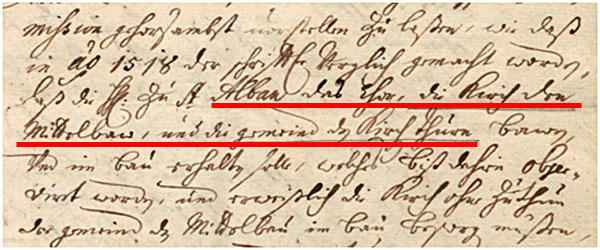 missive gehorsambst vorstellen zu laßen, wie daß
in ao 1518 der schrifftl Verglich gemacht worden,
daß die HH. zu St Alban das Chor, die Kirch den
Mittelbaw, und die gemeind dz Kirch thürn bawen,
Und im bau erhalten solle, welches biß dahin obser-
virt worden, und erweißlich die Kirch ohne Zuthun
der gemeind dz Mittelbau im bau müßen,